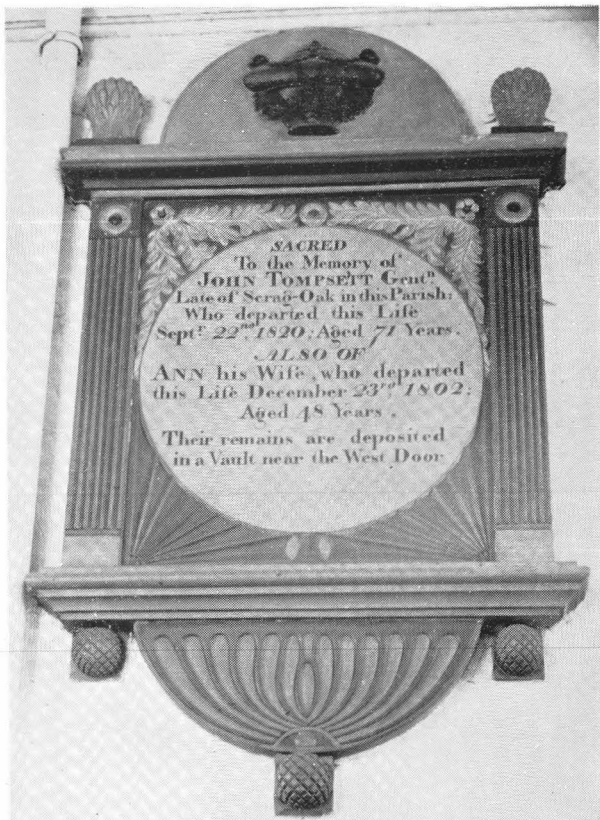 SACRED
To the Memory of
JOHN TOMPSETT Genᵗⁿ
Late of Scrag-Oak in this Parish:
Who departed this Life
Septʳ 22ⁿᵈ 1820; Aged 71 Years.
ALSO OF
ANN his Wife, who departed
this Life December 23ʳᵈ 1802;
Aged 48 Years.
Their remains are deposited
in a Vault near the West Door